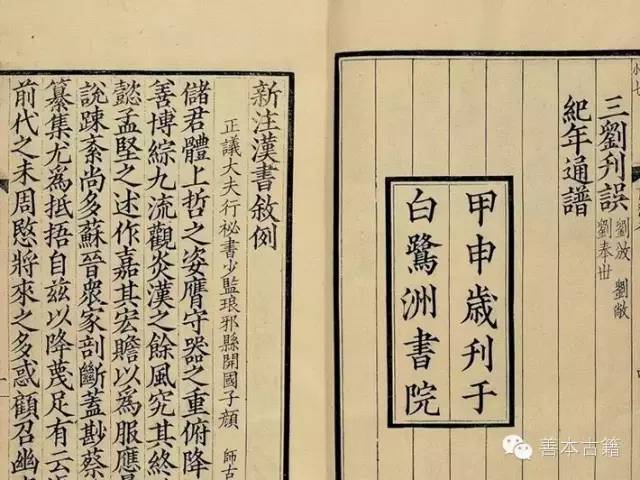 三劉刋誤 劉攽 劉敞
劉奉世
紀年通譜
甲申歲刋于
白鷺洲書院
新注漢書敘例
正議大夫行秘書少監琅邪縣開國子顔 師古
儲君體上哲之姿膺守器之重俯降
善博綜九流觀炎漢之餘風究其終
懿孟堅之述作嘉其宏贍以爲服應
說踈紊尚多蘇晉衆家剖斷蓋尠蔡
纂集尤爲抵捂自兹以降蔑足有云
前代之未周愍將來之多惑顧召幽
善本古籍